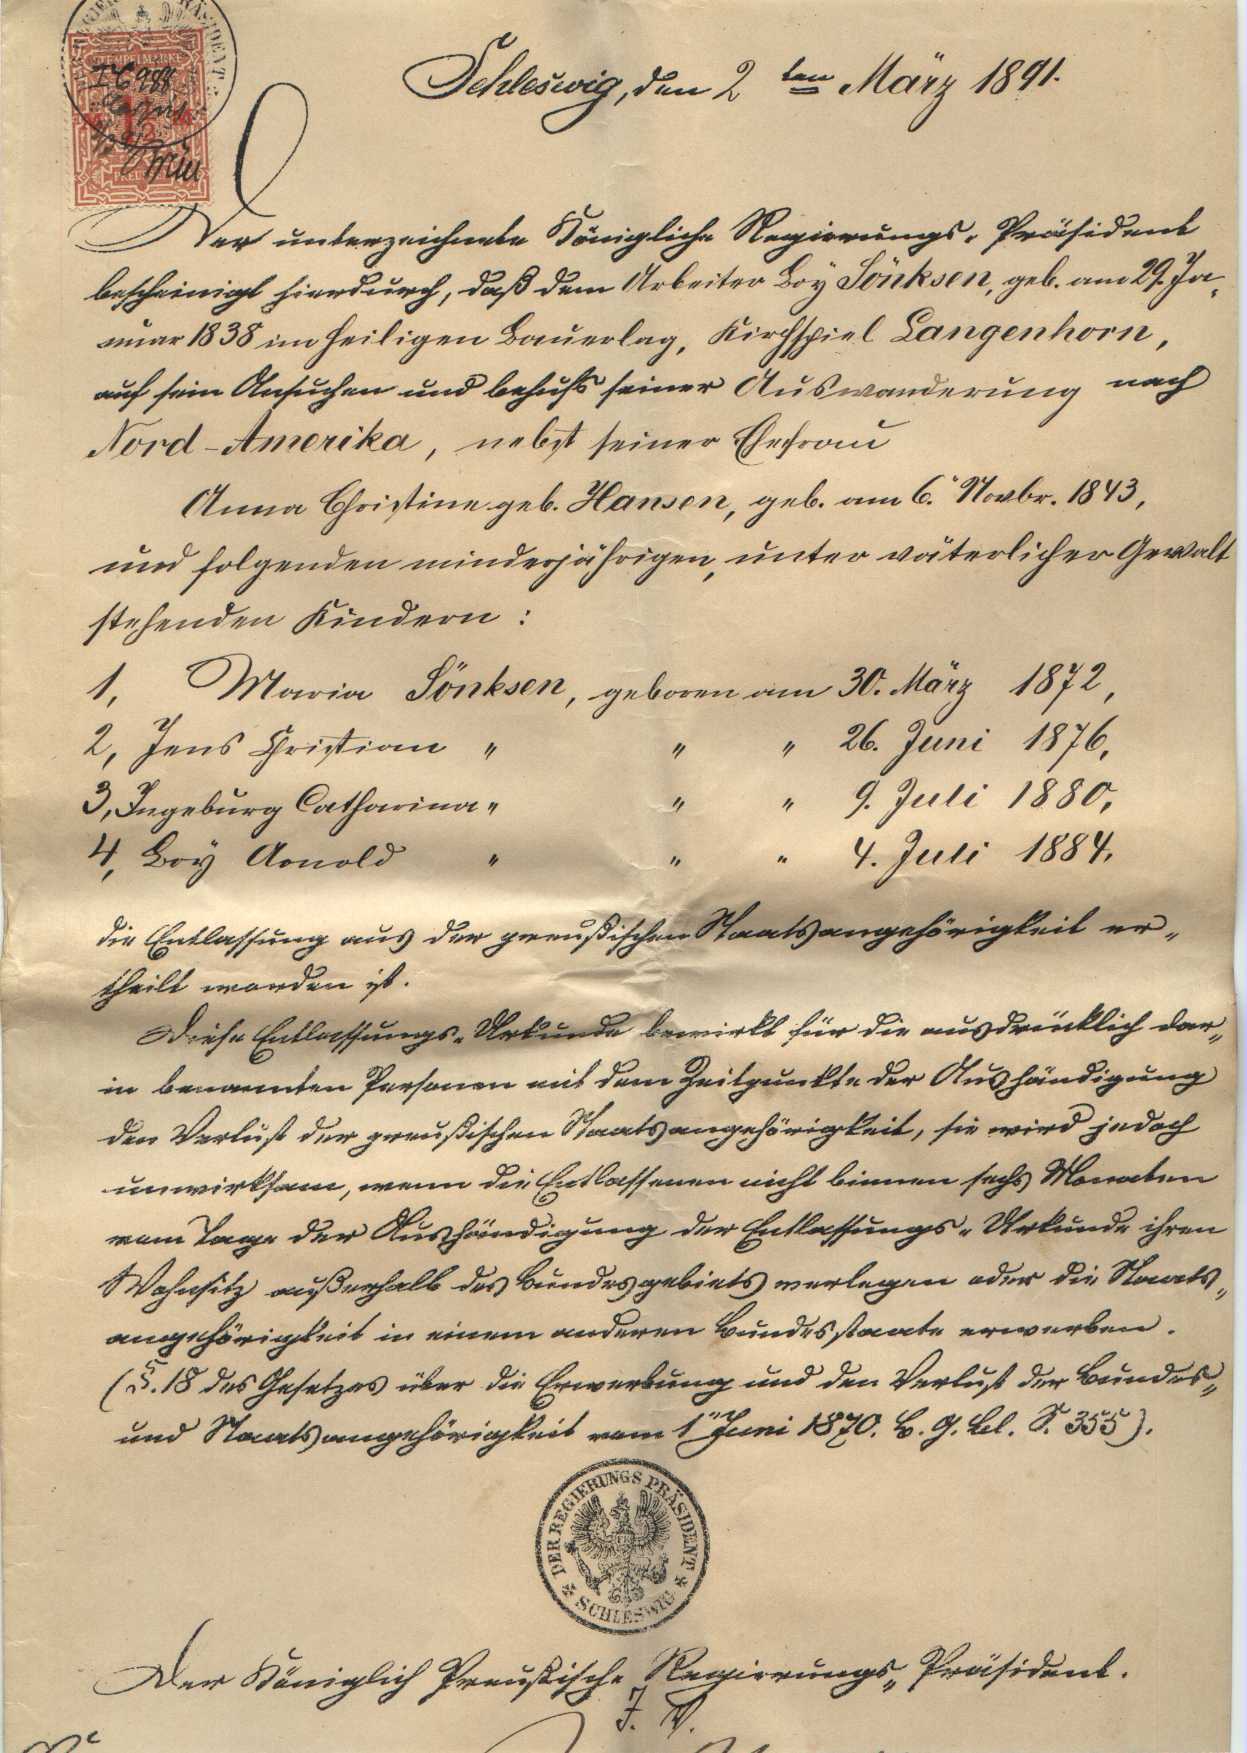 STEMPELMARKE
I C 988
Schleswig, den 2ten März 1891.
Der unterzeichnete Königliche Regierungs-Präsident
bescheinigt hierdurch, daß dem Arbeiter Boy Sönksen, geb. am 29. Ja-
nuar 1838 im heiligen Bauerlag, Kirchspiel Langenhorn,
auf sein Ansuchen und behufs seiner Auswanderung nach
Nord-Amerika, nebst seiner Ehefrau
Anna Christine geb. Hansen, geb. am 6. Novbr. 1843,
und folgenden minderjährigen, unter väterlicher Gewalt
stehenden Kindern:
1, Maria Sönksen, geboren am 30. März 1872,
2, Jens Christian " " " 26. Juni 1876,
3, Ingeburg Catharina " " " 9. Juli 1880,
4, Boy Arnold " " " 4. Juli 1884.
die Entlassung aus der preußischen Staatsangehörigkeit er-
theilt worden ist.
Diese Entlassungs-Urkunde bewirkt für die ausdrücklich dar-
in benannten Personen mit dem Zeitpunkte der Aushändigung
den Verlust der preußischen Staatsangehörigkeit, sie wird jedoch
unwirksam, wenn die Entlassenen nicht binnen sechs Monaten
vom Tage der Aushändigung der Entlassungs-Urkunde ihren
Wohnsitz außerhalb des Bundesgebiets verlegen oder die Staats-
angehörigkeit in einem anderen Bundesstaate erwerben.
(§. 18 des Gesetzes über die Erwerbung und den Verlust der Bundes-
und Staatsangehörigkeit vom 1. Juni 1870. B. G. Bl. S. 355).
DER REGIERUNGS PRÄSIDENT
SCHLESWIG
Der Königlich Preußische Regierungs-Präsident.
J. V.